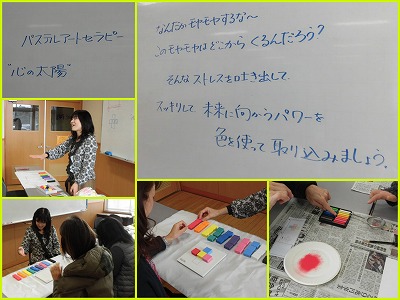 パステルアートセラピー
"心の太陽"
なんだかモヤモヤするな～
このモヤモヤはどこからくるんだろう?
そんなストレスを吐き出して
スッキリして 未来に向かうパワーを
色を使って取り込みましょう。